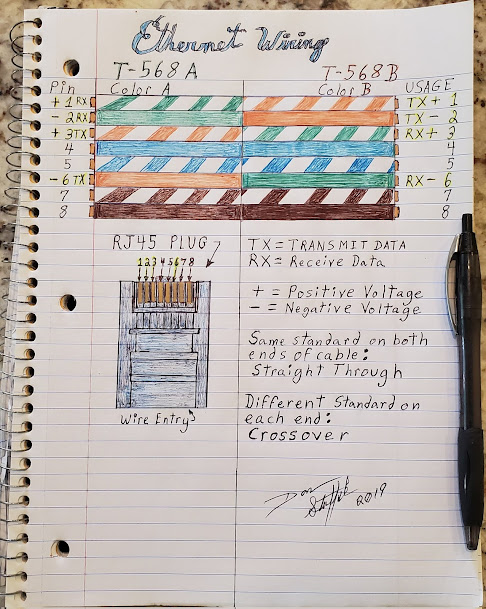 Ethernet Wiring
T-568A T-568B
Pin Color A Color B USAGE
+ 1 RX TX+ 1
- 2 RX TX- 2
+ 3 TX RX+ 3
4 4
5 5
- 6 TX RX- 6
7 7
8 8
RJ45 PLUG
12345678
Wire Entry
TX = TRANSMIT DATA
RX = Receive Data
+ = Positive Voltage
- = Negative Voltage
Same standard on both
ends of cable:
Straight Through
Different Standard on
each end:
Crossover
Don
2019